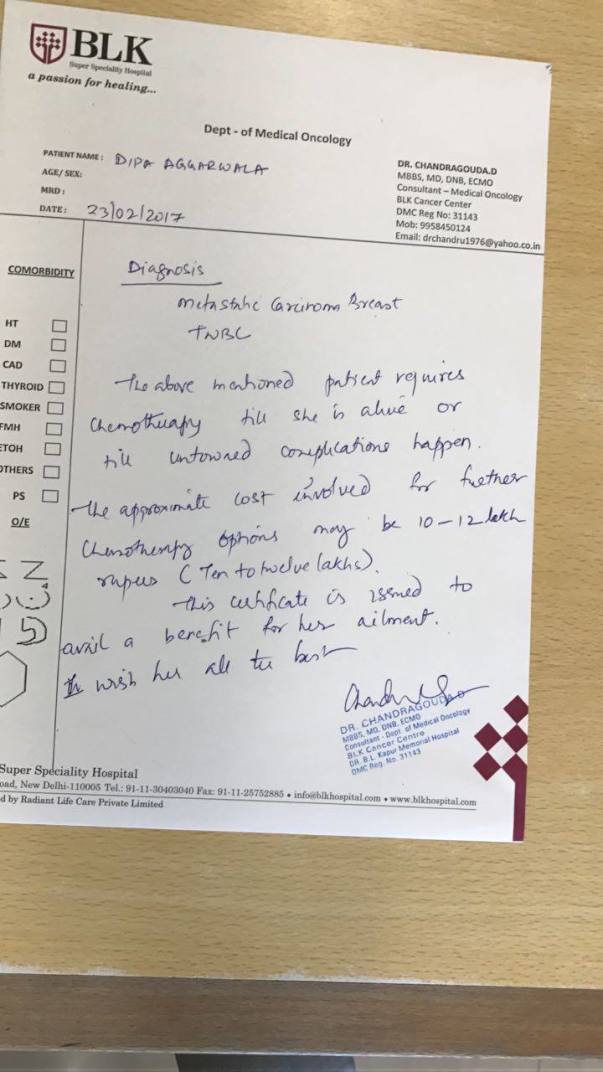 BLK
Super Speciality Hospital
a passion for healing...
Dept - of Medical Oncology
PATIENT NAME : DIPA AGGARWALA
AGE/ SEX:
MRD :
DATE : 23/02/2017
DR. CHANDRAGOUDA.D
MBBS, MD, DNB, ECMO
Consultant – Medical Oncology
BLK Cancer Center
DMC Reg No: 31143
Mob: 9958450124
Email: drchandru1976@yahoo.co.in
COMORBIDITY
HT
DM
CAD
THYROID
SMOKER
FMH
ETOH
OTHERS
PS
O/E
Diagnosis
Metastatic Carcinoma Breast
TNBC
The above mentioned patient requires
Chemotherapy till she is alive or
till untowned complications happen.
The approximate cost involved for further
Chemotherapy options may be 10-12 lakh
rupees (Ten to twelve lakhs).
This certificate is issued to
avail a benefit for her ailment.
I wish her all the best
DR. CHANDRAGOUDA.D
MBBS, MD, DNB, ECMO
Consultant - Dept. of Medical Oncology
BLK Cancer Centre
DR. B.L. Kapur Memorial Hospital
DMC Reg. No. 31143
Super Speciality Hospital
oad, New Delhi-110005 Tel.: 91-11-30403040 Fax: 91-11-25752885 • info@blkhospital.com • www.blkhospital.com
d by Radiant Life Care Private Limited